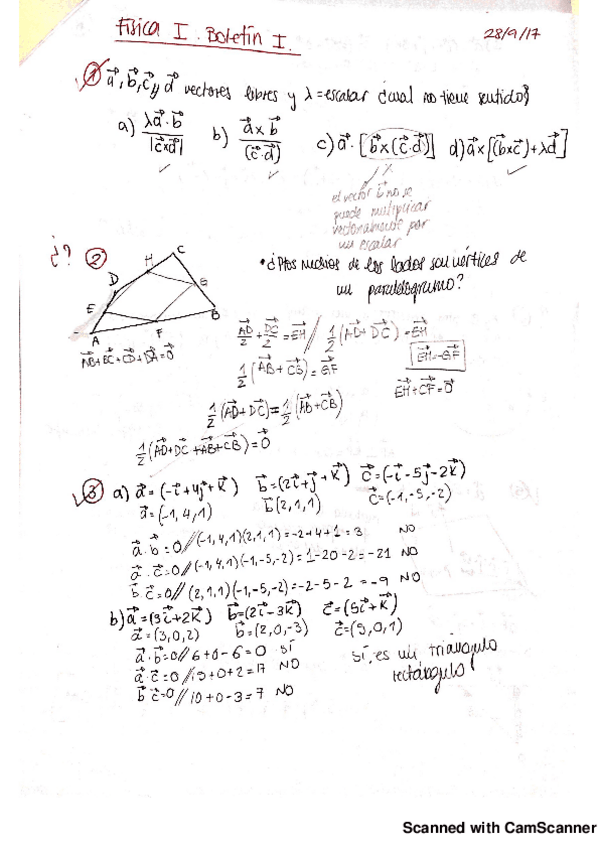 Física I. Boletín I. 28/9/17
1) a⃗, b⃗, c⃗ y d⃗ vectores libres y λ=escalar ¿cual no tiene sentido?
a) λa⃗·b⃗ / |c⃗xd⃗| b) a⃗xb⃗ / (c⃗·d⃗) c) a⃗·[b⃗x(c⃗·d⃗)] d) a⃗x[(b⃗xc⃗)+λd⃗]
el vector b⃗ no se
puede multiplicar
vectorialmente por
un escalar
¿? 2)
C
H
D
G
E
B
F
A
•¿Ptos medios de los lados son vértices de
un paralelogramo?
AB+BC+CD+DA=0⃗
AD/2+DC/2=EH // 1/2(AD+DC)=EH
1/2(AB+CB)=GF
EH=-GF
EH+GF=0⃗
1/2(AD+DC)=1/2(AB+CB)
1/2(AD+DC+AB+CB)=0⃗
3) a) a⃗=(-i⃗+4j⃗+k⃗) b⃗=(2i⃗+j⃗+k⃗) c⃗=(-i⃗-5j⃗-2k⃗)
a⃗=(-1,4,1) b⃗(2,1,1) c⃗=(-1,-5,-2)
a⃗·b⃗=0//(-1,4,1)(2,1,1)=-2+4+1=3 NO
a⃗·c⃗=0//(-1,4,1)(-1,-5,-2)=1-20-2=-21 NO
b⃗·c⃗=0//(2,1,1)(-1,-5,-2)=-2-5-2=-9 NO
b) a⃗=(3i⃗+2k⃗) b⃗=(2i⃗-3k⃗) c⃗=(5i⃗+k⃗)
a⃗=(3,0,2) b⃗=(2,0,-3) c⃗=(5,0,1)
a⃗·b⃗=0//6+0-6=0 SÍ
a⃗·c⃗=0//15+0+2=17 NO
b⃗·c⃗=0//10+0-3=7 NO
Sí, es un triángulo
rectángulo
Scanned with CamScanner